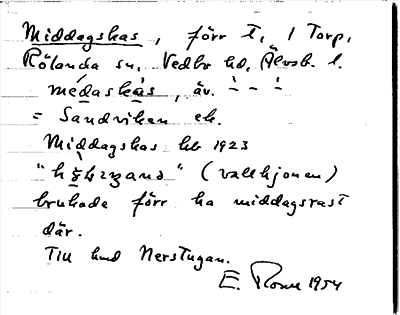 Middagskas, förr t, 1 Torp,
Rölanda sn, Vedbo hd, Älvsb. l.
medaskas, äv.
= Sandviken ek.
Middagskas hb 1923
" " (vallhjonen)
brukade förr ha middagsrast
där.
Till hmd Nerstugan.
E. Rosm 1954